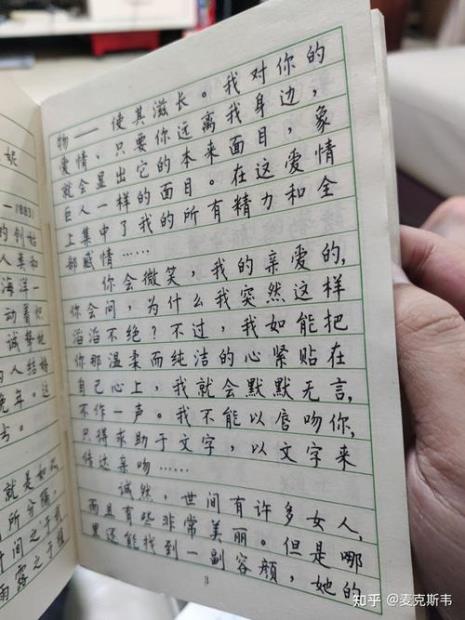 妮
1883)
的创始
人类和
海洋一
诚挚地
人结婚
晚年。这
就是如风
所分痛,
时间之于
雨露之于植
物—— 使其滋长。我对你的
爱情,只要你远离我身边,
就会显出它的本来面目,象
巨人一样的面目。在这爱情
上集中了我的所有精力和全
部感情……
你会微笑,我的亲爱的,
你会问,为什么我突然这样
滔滔不绝?不过,我如能把
你那温柔而纯洁的心紧贴在
自己心上,我就会默默无言,
不作一声。我不能以唇吻你,
只得求助于文字,以文字来
传达亲吻……
诚然,世间有许多女人,
而且有些非常美丽。但是哪
里还能找到一副容颜,她的
3
知乎 @麦克斯韦